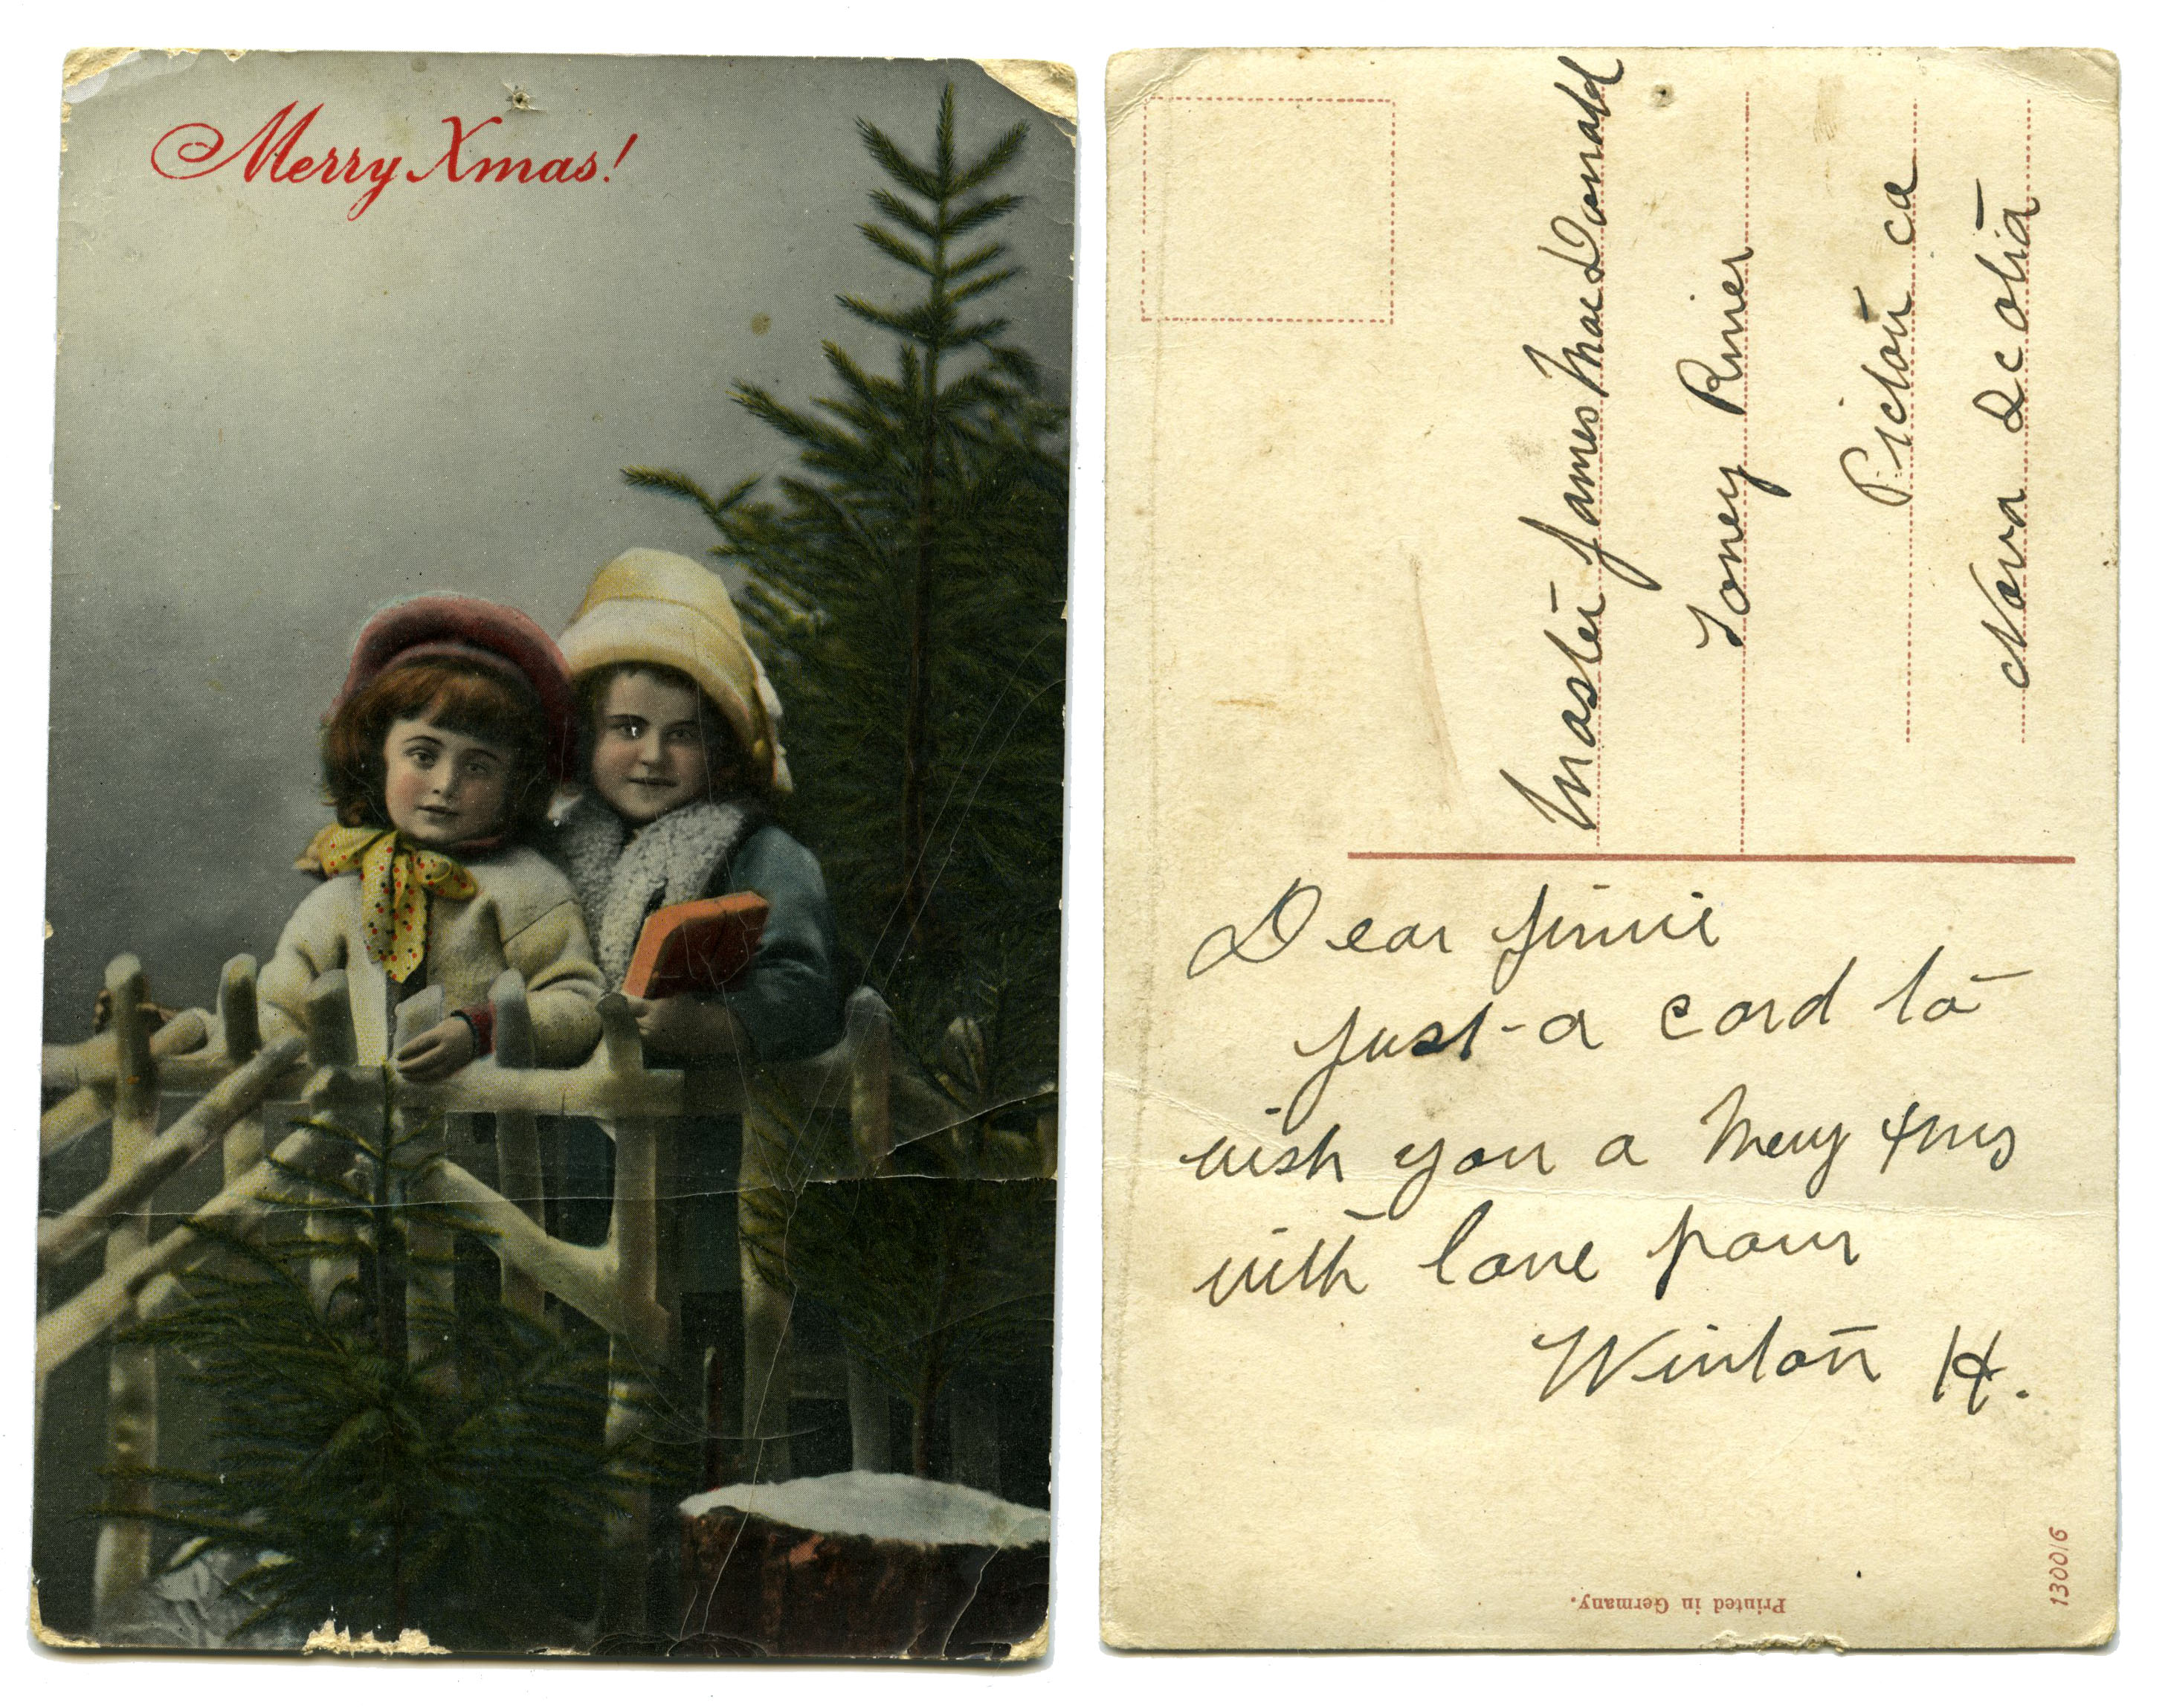 Merry Xmas!
Master James MacDonald
Toney River
Pictou co
Nova Scotia
Dear Jimie
just a card to
wish you a Merry Xmas
with love from
Winton H.
Printed in Germany.
13001/6